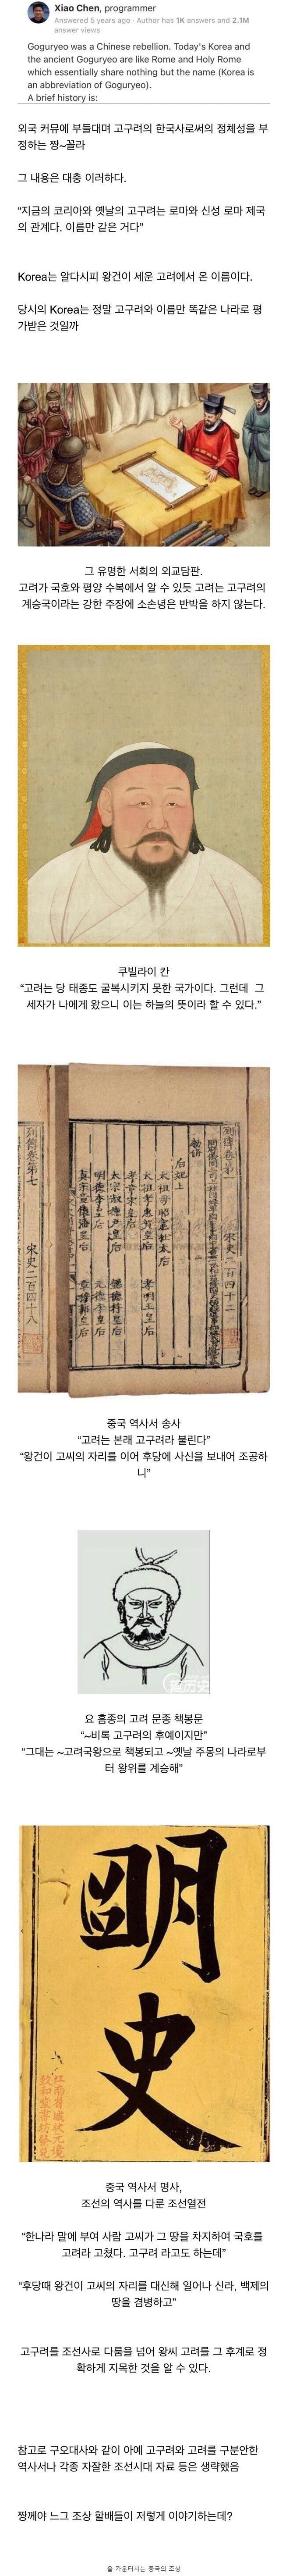 Xiao Chen, programmer
Answered 5 years ago · Author has 1K answers and 2.1M
answer views
Goguryeo was a Chinese rebellion. Today's Korea and
the ancient Goguryeo are like Rome and Holy Rome
which essentially share nothing but the name (Korea is
an abbreviation of Goguryeo).
A brief history is:
외국 커뮤에 부들대며 고구려의 한국사로써의 정체성을 부
정하는 짱~꼴라
그 내용은 대충 이러하다.
“지금의 코리아와 옛날의 고구려는 로마와 신성 로마 제국
의 관계다. 이름만 같은 거다”
Korea는 알다시피 왕건이 세운 고려에서 온 이름이다.
당시의 Korea는 정말 고구려와 이름만 똑같은 나라로 평
가받은 것일까
그 유명한 서희의 외교담판.
고려가 국호와 평양 수복에서 알 수 있듯 고려는 고구려의
계승국이라는 강한 주장에 소손녕은 반박을 하지 않는다.
쿠빌라이 칸
“고려는 당 태종도 굴복시키지 못한 국가이다. 그런데 그
세자가 나에게 왔으니 이는 하늘의 뜻이라 할 수 있다.”
列傳卷第七
宋史二百四十八
后妃上
列傳卷第一
宋史二百四十二
중국 역사서 송사
“고려는 본래 고구려라 불린다”
“왕건이 고씨의 자리를 이어 후당에 사신을 보내어 조공하
니”
历史
요 흥종의 고려 문종 책봉문
“~비록 고구려의 후예이지만”
“그대는 ~고려국왕으로 책봉되고 ~옛날 주몽의 나라로부
터 왕위를 계승해”
明
史
중국 역사서 명사,
조선의 역사를 다룬 조선열전
“한나라 말에 부여 사람 고씨가 그 땅을 차지하여 국호를
고려라 고쳤다. 고구려 라고도 하는데”
“후당때 왕건이 고씨의 자리를 대신해 일어나 신라, 백제의
땅을 겸병하고”
고구려를 조선사로 다룸을 넘어 왕씨 고려를 그 후계로 정
확하게 지목한 것을 알 수 있다.
참고로 구오대사와 같이 아예 고구려와 고려를 구분안한
역사서나 각종 자잘한 조선시대 자료 등은 생략했음
짱께야 느그 조상 할배들이 저렇게 이야기하는데?
올 카운터치는 중국의 조상